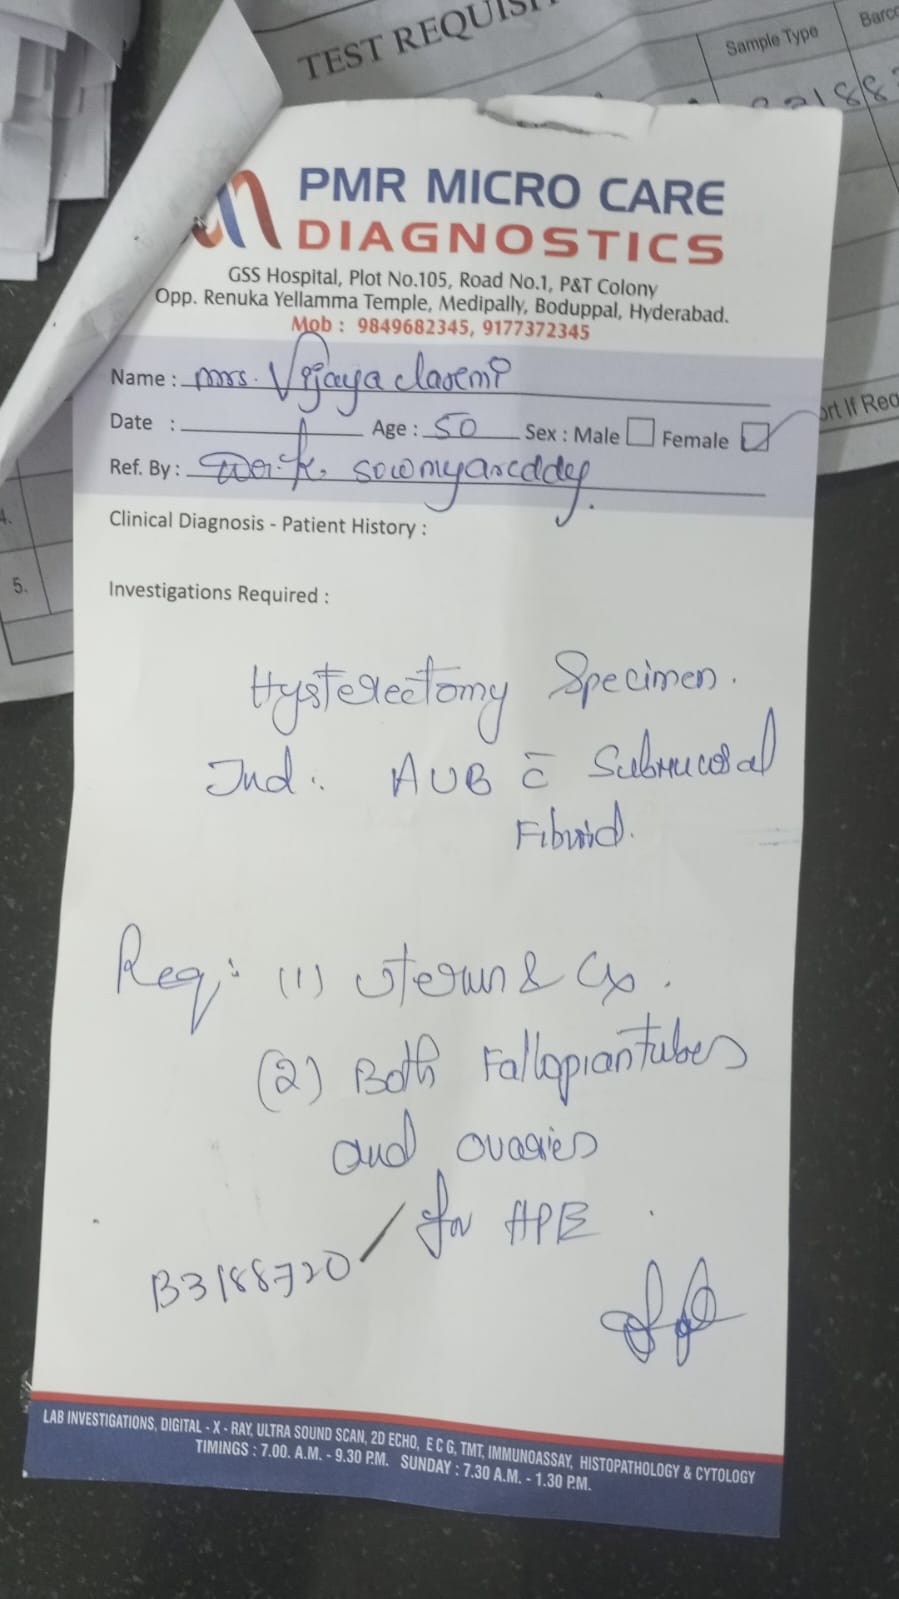 TEST REQUISI
Sample Type
Barco
PMR MICRO CARE
DIAGNOSTICS
GSS Hospital, Plot No.105, Road No.1, P&T Colony
Opp. Renuka Yellamma Temple, Medipally, Boduppal, Hyderabad.
Mob : 9849682345, 9177372345
Name : mrs. Vijaya
Date : Age : 50 Sex : Male Female
ort If Req
Ref. By : sowmyareddy.
4.
Clinical Diagnosis - Patient History :
5.
Investigations Required :
Hysterectomy Specimen.
Ind : AUB c̄ Submucosal
Fibroid.
Req : (1) Uterus & Cx.
(2) Both Fallopian tubes
and ovaries
for HPE.
B3188720
LAB INVESTIGATIONS, DIGITAL - X - RAY, ULTRA SOUND SCAN, 2D ECHO, E C G, TMT, IMMUNOASSAY, HISTOPATHOLOGY & CYTOLOGY
TIMINGS : 7.00. A.M. - 9.30 P.M. SUNDAY : 7.30 A.M. - 1.30 P.M.